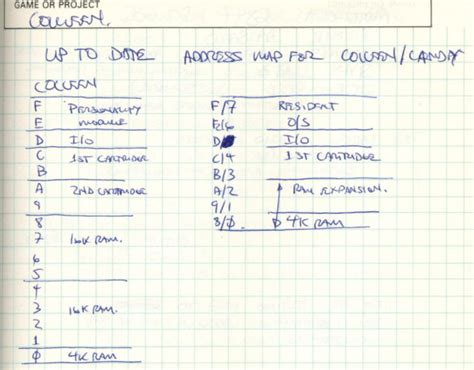 GAME OR PROJECT
COLLEEN.
UP TO DATE ADDRESS MAP FOR COLLEEN/CANDY
COLLEEN
F PERSONALITY
E MODULE
D I/O
C 1ST CARTRIDGE
B
A 2ND CARTRIDGE
9
8
7 16K RAM.
6
5
4
3 16K RAM.
2
1
0 4K RAM
F/7 RESIDENT
E/6 O/S
D I/O
C/4 1ST CARTRIDGE
B/3
A/2 RAM EXPANSION.
9/1
8/0 4K RAM